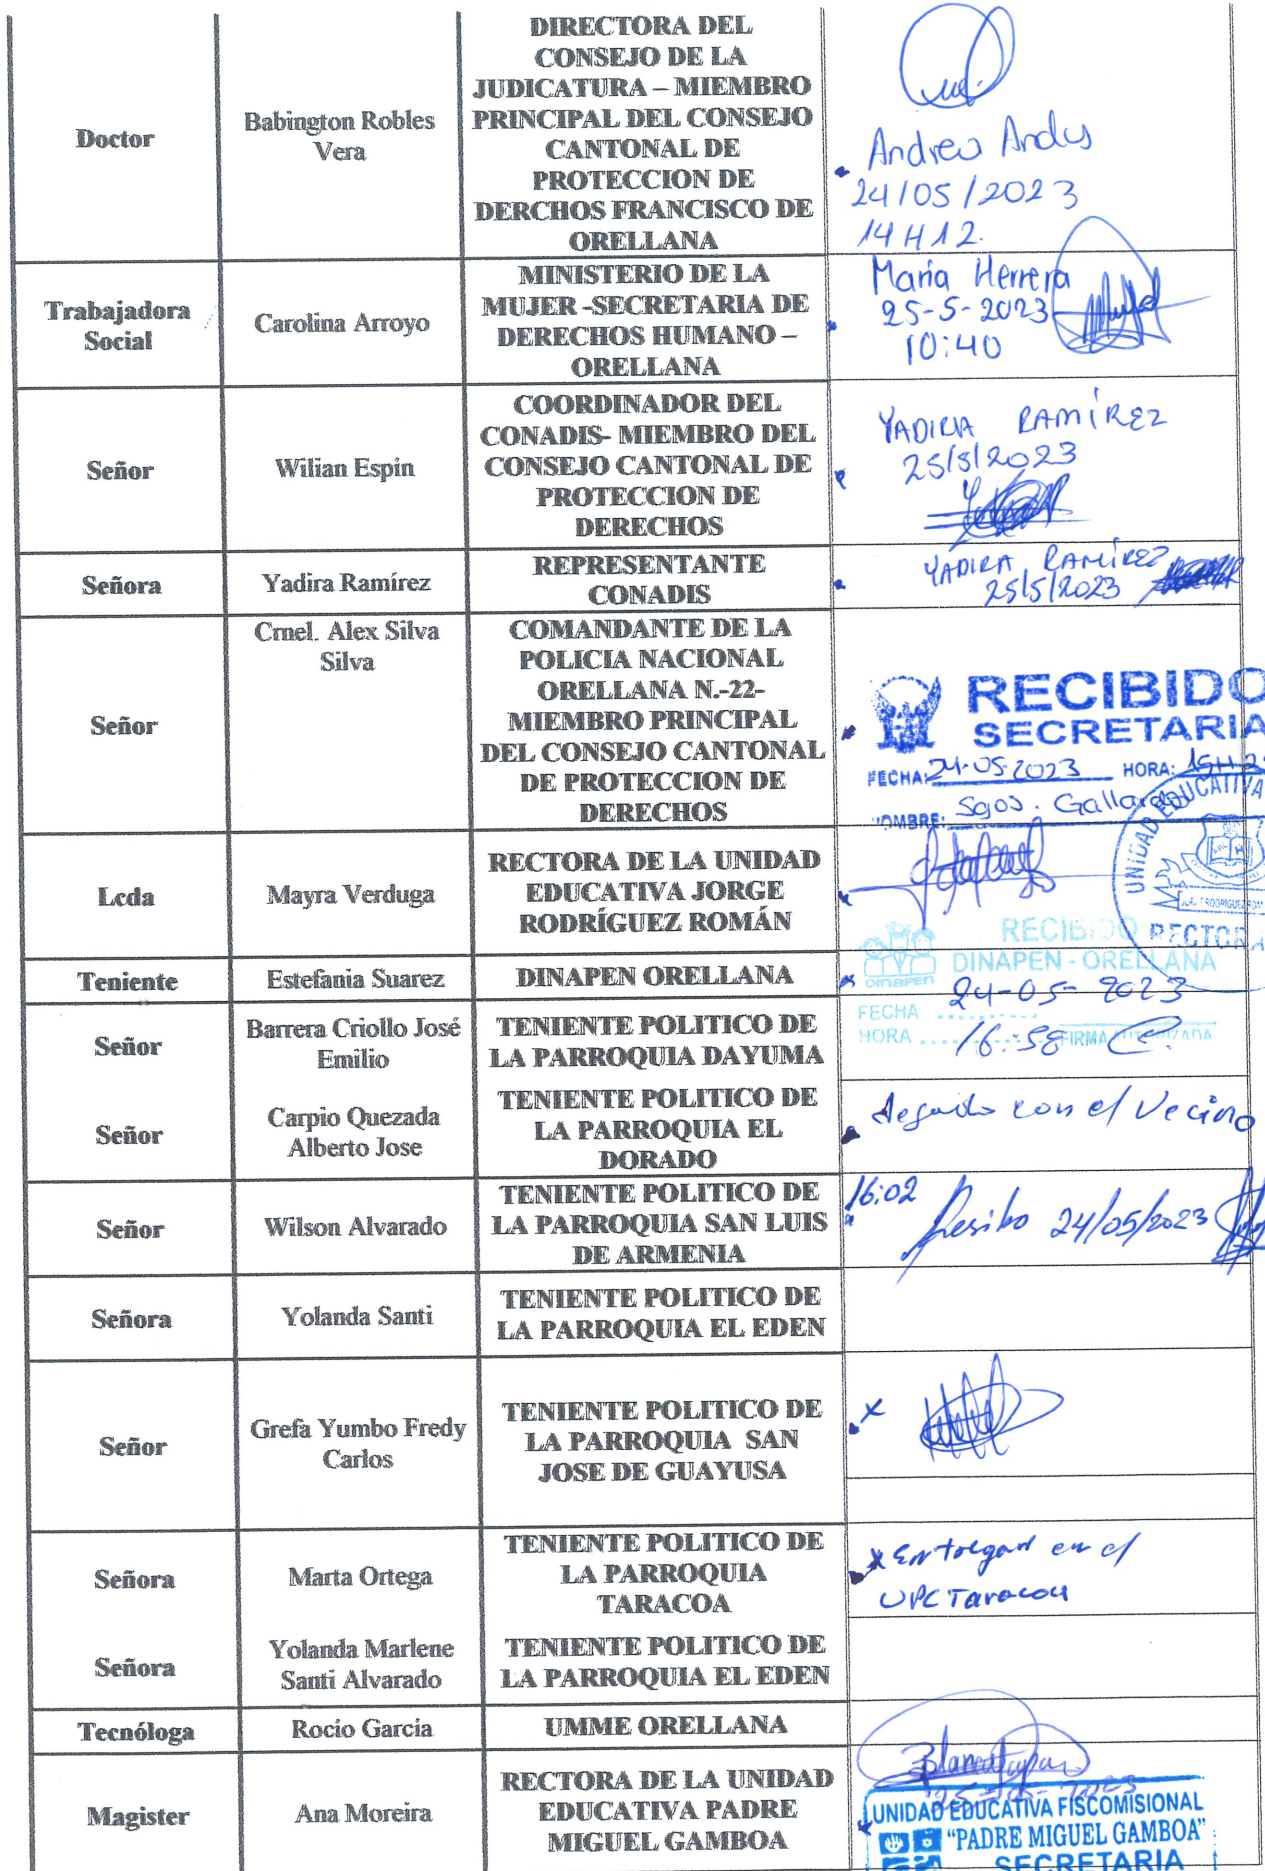 Doctor
Babington Robles
Vera
DIRECTORA DEL
CONSEJO DE LA
JUDICATURA – MIEMBRO
PRINCIPAL DEL CONSEJO
CANTONAL DE
PROTECCION DE
DERCHOS FRANCISCO DE
ORELLANA
24/05/2023
14H12.
Trabajadora
Social
Carolina Arroyo
MINISTERIO DE LA
MUJER -SECRETARIA DE
DERECHOS HUMANO –
ORELLANA
María Herrera
25-5-2023
10:40
Señor
Wilian Espín
COORDINADOR DEL
CONADIS- MIEMBRO DEL
CONSEJO CANTONAL DE
PROTECCION DE
DERECHOS
YADIRA RAMÍREZ
25/5/2023
Señora
Yadira Ramírez
REPRESENTANTE
CONADIS
YADIRA RAMÍREZ
25/5/2023
Señor
Crnel. Alex Silva
Silva
COMANDANTE DE LA
POLICIA NACIONAL
ORELLANA N.-22-
MIEMBRO PRINCIPAL
DEL CONSEJO CANTONAL
DE PROTECCION DE
DERECHOS
RECIBIDO
SECRETARIA
FECHA: 24-05-2023 HORA:
NOMBRE: Sgos. Gallardo
Lcda
Mayra Verduga
RECTORA DE LA UNIDAD
EDUCATIVA JORGE
RODRÍGUEZ ROMÁN
UNIDAD EDUCATIVA
Teniente
Estefania Suarez
DINAPEN ORELLANA
RECIBIDO
DINAPEN - ORELLANA
DINAPEN
FECHA 24-05-2023
HORA 16:58 FIRMA AUTORIZADA
Señor
Barrera Criollo José
Emilio
TENIENTE POLITICO DE
LA PARROQUIA DAYUMA
Señor
Carpio Quezada
Alberto Jose
TENIENTE POLITICO DE
LA PARROQUIA EL
DORADO
con el Vecino
Señor
Wilson Alvarado
TENIENTE POLITICO DE
LA PARROQUIA SAN LUIS
DE ARMENIA
16:02
Resibo 24/05/2023
Señora
Yolanda Santi
TENIENTE POLITICO DE
LA PARROQUIA EL EDEN
Señor
Grefa Yumbo Fredy
Carlos
TENIENTE POLITICO DE
LA PARROQUIA SAN
JOSE DE GUAYUSA
x
Señora
Marta Ortega
TENIENTE POLITICO DE
LA PARROQUIA
TARACOA
x Entregan en el
UPC Taracoa
Señora
Yolanda Marlene
Santi Alvarado
TENIENTE POLITICO DE
LA PARROQUIA EL EDEN
Tecnóloga
Rocío García
UMME ORELLANA
Magister
Ana Moreira
RECTORA DE LA UNIDAD
EDUCATIVA PADRE
MIGUEL GAMBOA
25-05-2023
UNIDAD EDUCATIVA FISCOMISIONAL
"PADRE MIGUEL GAMBOA"
SECRETARIA